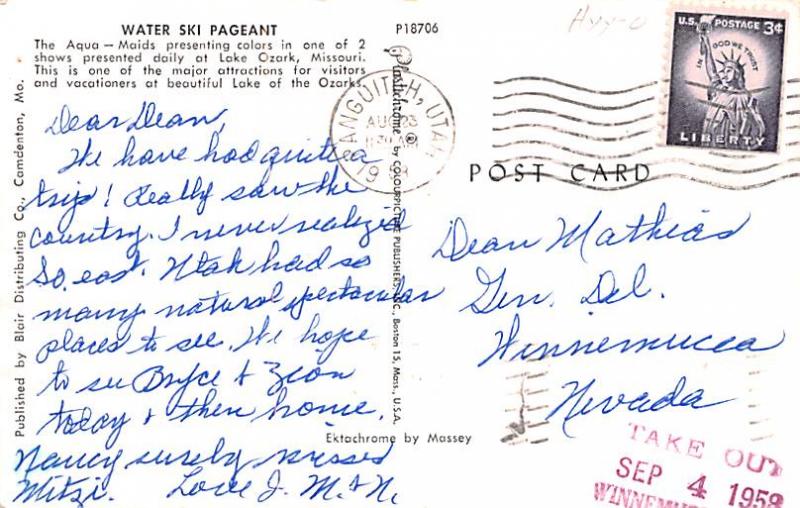 WATER SKI PAGEANT
The Aqua — Maids presenting colors in one of 2
shows presented daily at Lake Ozark, Missouri.
This is one of the major attractions for visitors
and vacationers at beautiful Lake of the Ozarks.
P18706
Published by Blair Distributing Co., Camdenton, Mo.
Dear Dean,
We have had quite a
trip! Really saw the
country. I never realized
So. east. Utah had so
many natural spectacular
places to see. We hope
to see Bryce & Zion
today & then home.
Nancy surely missed
Mitzi. Love J. M. & N.
Plastichrome ® by COLOURPICTURE PUBLISHERS, INC., Boston 15, Mass., U.S.A.
PANGUITCH, UTAH
AUG 23
AM
U.S. POSTAGE 3¢
IN GOD WE TRUST
LIBERTY
POST CARD
Dean Mathias
Gen. Del.
Winnemucca
Nevada
Ektachrome by Massey
TAKE OUT
SEP 4 1958